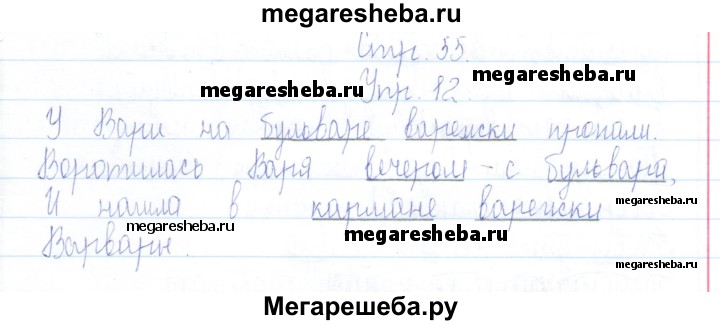 megaresheba.ru
Стр. 55.
megaresheba.ru
megaresheba.ru
Упр. 12.
У Вари на бульваре варежки пропали.
Воротилась Варя вечером - с бульвара,
И нашла в кармане варежки
megaresheba.ru
megaresheba.ru
Варвары.
Мегарешеба.ру